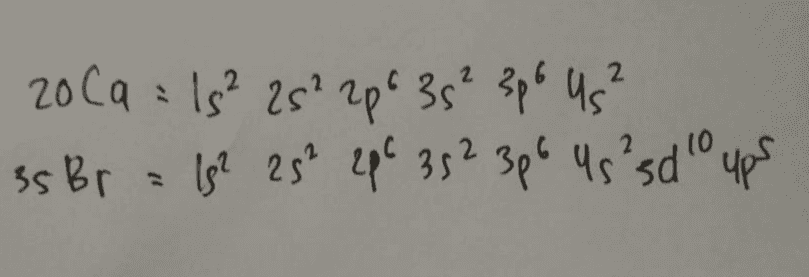 20Ca = 1s² 2s² 2p⁶ 3s² 3p⁶ 4s²
35Br = 1s² 2s² 2p⁶ 3s² 3p⁶ 4s² 3d¹⁰ 4p⁵